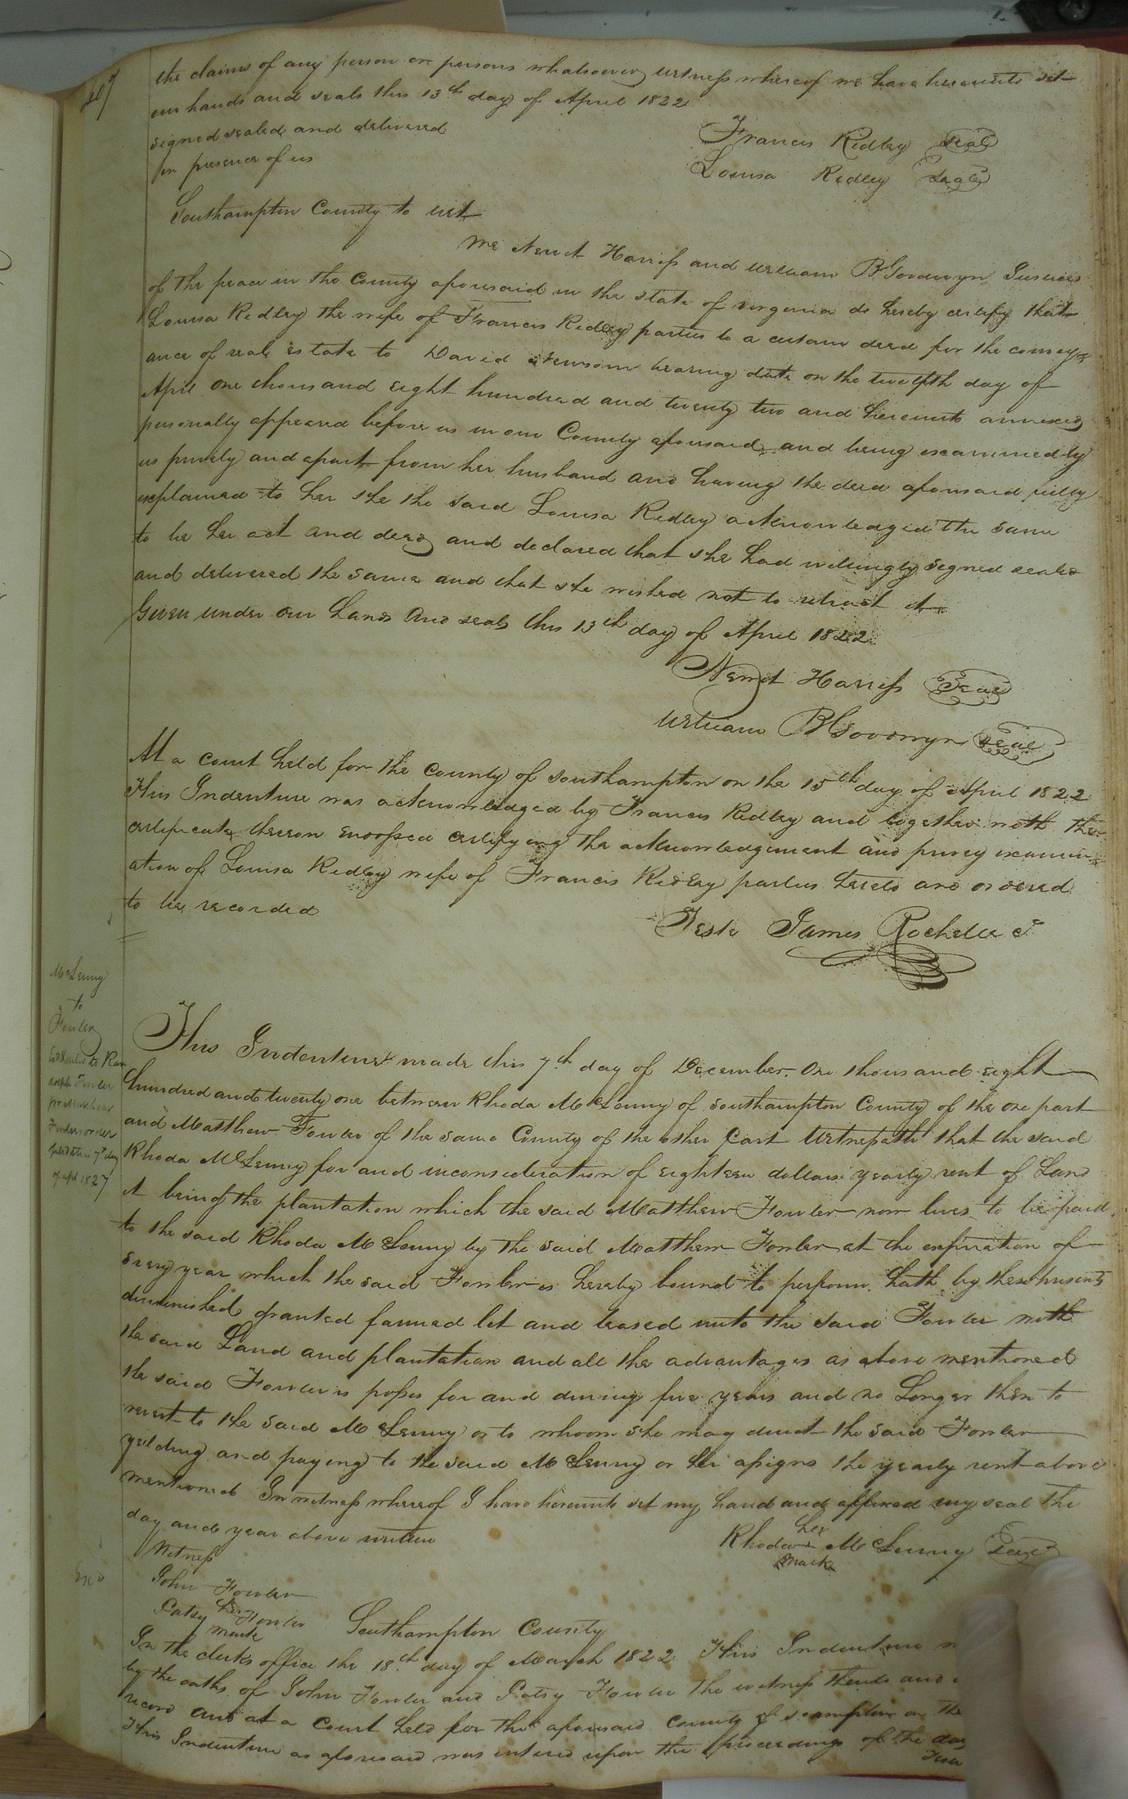 the claims of any person or persons whatsoever, witness whereof we have hereunto set
our hands and seals this 13th day of April 1822
signed sealed and delivered
in presence of us
Francis Ridley Seal
Louisa Ridley Seal
Southampton County to wit
We Newit Harriss and William B Goodwyn Justices
of the peace in the County aforesaid in the state of virginia do hereby certify that
Louisa Ridley the wife of Francis Ridley parties to a certain deed for the convey
ance of real estate to David Newsom bearing date on the twelfth day of
April one thousand eight hundred and twenty two and hereunto annexed
personally appeared before us in our County aforesaid, and being examined by
us privily and apart from her husband and having the deed aforesaid fully
explained to her she the said Louisa Ridley acknowledged the same
to be her act and deed and declared that she had willingly signed sealed
and delivered the same and that she wished not to retract it
Given under our hands and seals this 13th day of April 1822
Newit Harriss Seal
William B Goodwyn Seal
At a court held for the County of Southampton on the 15th day of April 1822
This Indenture was acknowledged by Francis Ridley and together with the
certificate thereon endorsed certifying the acknowledgement and privy examin
ation of Louisa Ridley wife of Francis Ridley parties hereto are ordered
to be recorded
Teste James Rochelle C
McLenny
to
Fowler
of apl 1827
This Indenture made this 7th day of December One thousand eight
hundred and twenty one between Rhoda McLenny of Southampton County of the one part
and Matthew Fowler of the same County of the other part Witnesseth that the said
Rhoda McLenny for and in consideration of eighteen dollars yearly rent of Land
it being the plantation which the said Matthew Fowler now lives to be paid
to the said Rhoda McLenny by the said Matthew Fowler at the expiration of
every year which the said Fowler is hereby bound to perform. hath by these presents
diminished granted farmed let and leased unto the said Fowler with
the said Land and plantation and all the advantages as above mentioned
the said Fowler is posses for and during five years and no Longer then to
revert to the said McLenny or to whom she may direct the said Fowler
yeilding and paying to the said McLenny or her assigns the yearly rent above
mentioned In witness whereof I have hereunto set my hand and affixed my seal the
day and year above written
Rhoda her mark McLenny Seal
Witness
John Fowler
Patsy her mark Fowler
Southampton County
In the clerks office the 18th day of March 1822 This Indenture
by the oaths of John Fowler and Patsy Fowler the witness thereto and
record and at a Court held for the aforesaid County of on the
This Indenture as aforesaid was entered upon the proceedings of the day